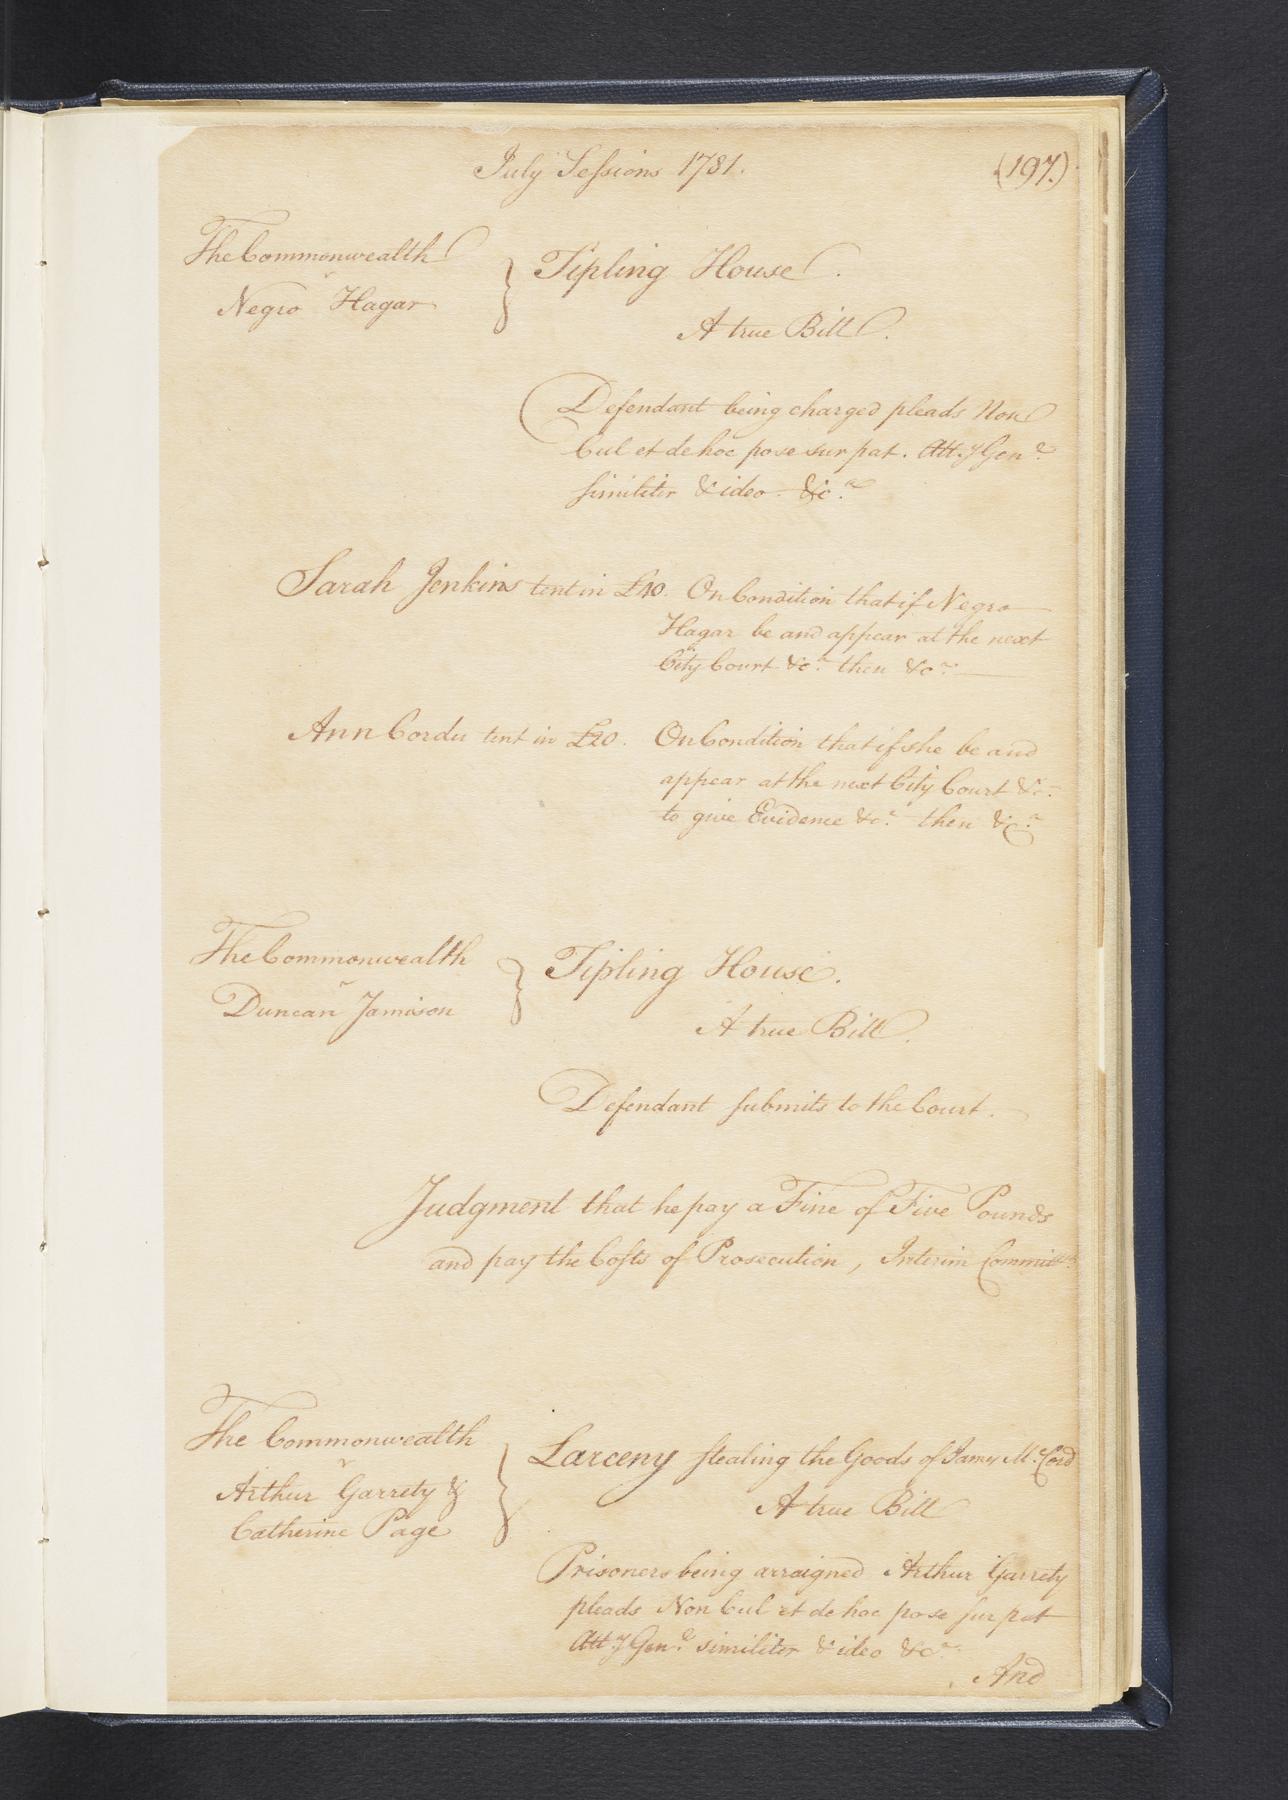 July Sessions 1781.
(197.)
The Commonwealth
v
Negro Hagar
Tipling House.
A true Bill.
Defendant being charged pleads Non
Cul et de hoc pose sur pat. Atty Genl.
similiter & ideo &ca.
Sarah Jenkins tent in £40. On Condition that if Negro
Hagar be and appear at the next
City Court &ca. then &ca.
Ann Cordu tent in £20. On Condition that if she be and
appear at the next City Court &ca.
to give Evidence &ca. then &ca.
The Commonwealth
v
Duncan Jamison
Tipling House.
A true Bill.
Defendant submits to the Court.
Judgment that he pay a Fine of Five Pounds
and pay the Costs of Prosecution, Interim Committr.
The Commonwealth
v
Arthur Garrety &
Catherine Page
Larceny stealing the Goods of James McCord
A true Bill
Prisoners being arraigned Arthur Garrety
pleads Non Cul et de hoc pose sur pat
Atty Genl. similiter & ideo &ca.
And